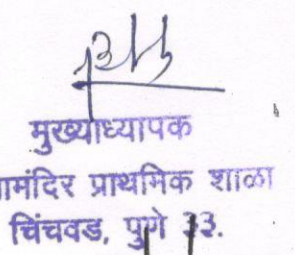 मुख्याध्यापक
ामंदिर प्राथमिक शाळा
चिंचवड, पुणे ३३.